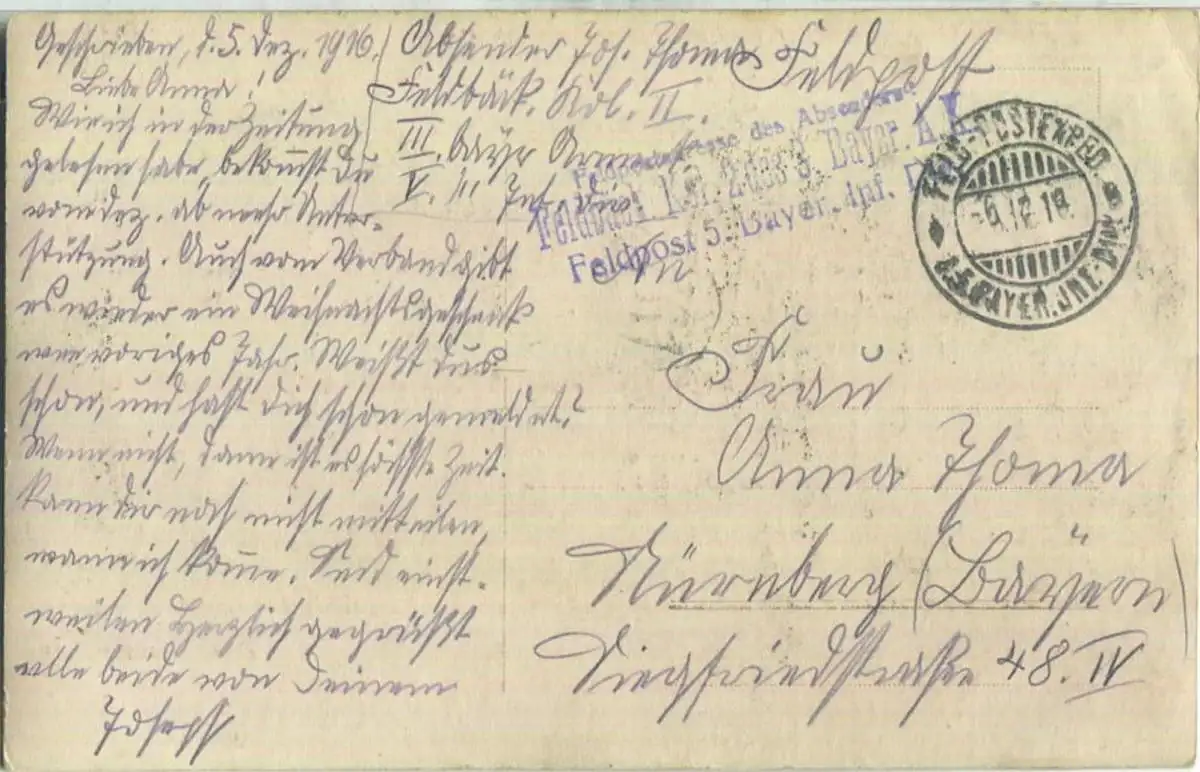 Geschrieben, d. 5. Dez. 1916.
Liebe Anna!
Wie ich in der Zeitung
gelesen habe, bekommst du
vom Dez. ab mehr Unter-
stützung. Auch vom Verband gibt
es wieder ein Weihnachtsgeschenk
wie voriges Jahr. Weißt dus
schon, und hast dich schon gemeldet?
Wenn nicht, dann ist es höchste Zeit.
Kann dir noch nicht mitteilen,
wann ich komme. Seid einst-
weilen Herzlich gegrüßt
alle beide von Deinem
Joseph
Absender Jos. Thoma
Feldbäck. Kol. II.
III. bayr. Armee
V. " Inf. Div.
Feldpost
des Absenders
Feldbäck. Kol. 2 des 3. Bayer. A.K.
Feldpost 5. Bayer. Inf. Div.
FELD-POSTEXPED.
6.12.16
d. 5. BAYER. INF. DIV.
An
Frau
Anna Thoma
Nürnberg (Bayern)
Siegfriedstraße 48. IV